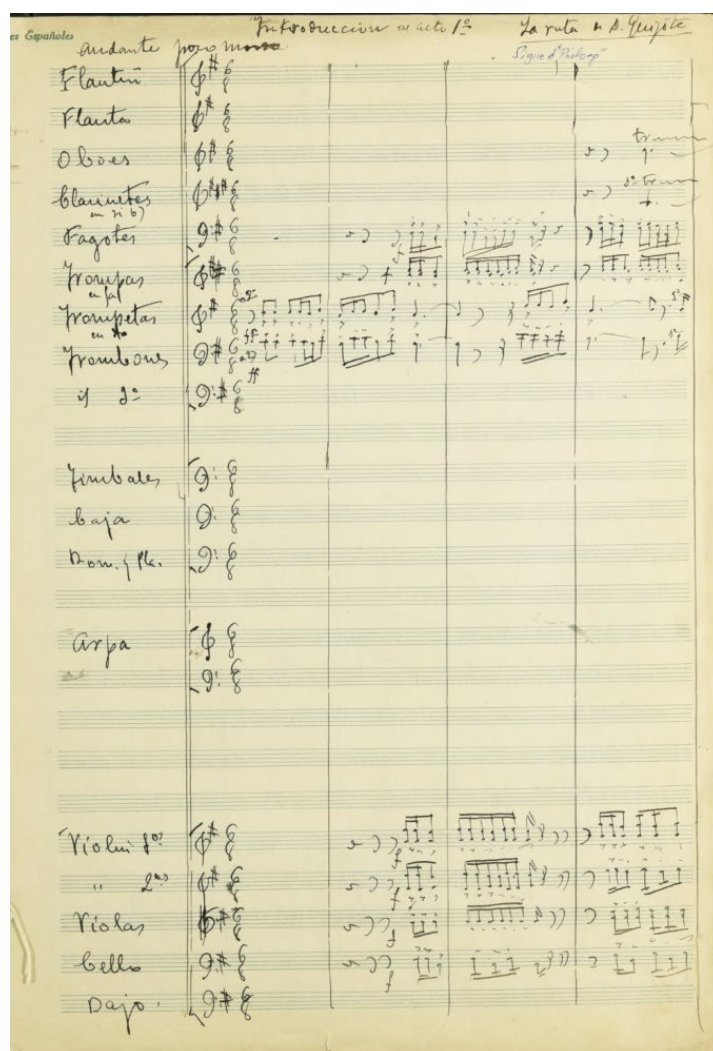 es Españoles
Introduccion al acto 1º La ruta de D. Quijote
Andante poco mosso
Sigue d'Prólogo
Flautin
Flauta
Oboes
Clarinetes
en si b
Fagotes
Trompas
en fa
Trompetas
en do
Trombones
y 3º
Timbales
Caja
Bom. y Pla.
Arpa
Violin 1os
" 2os
Violas
Cello
Bajo.